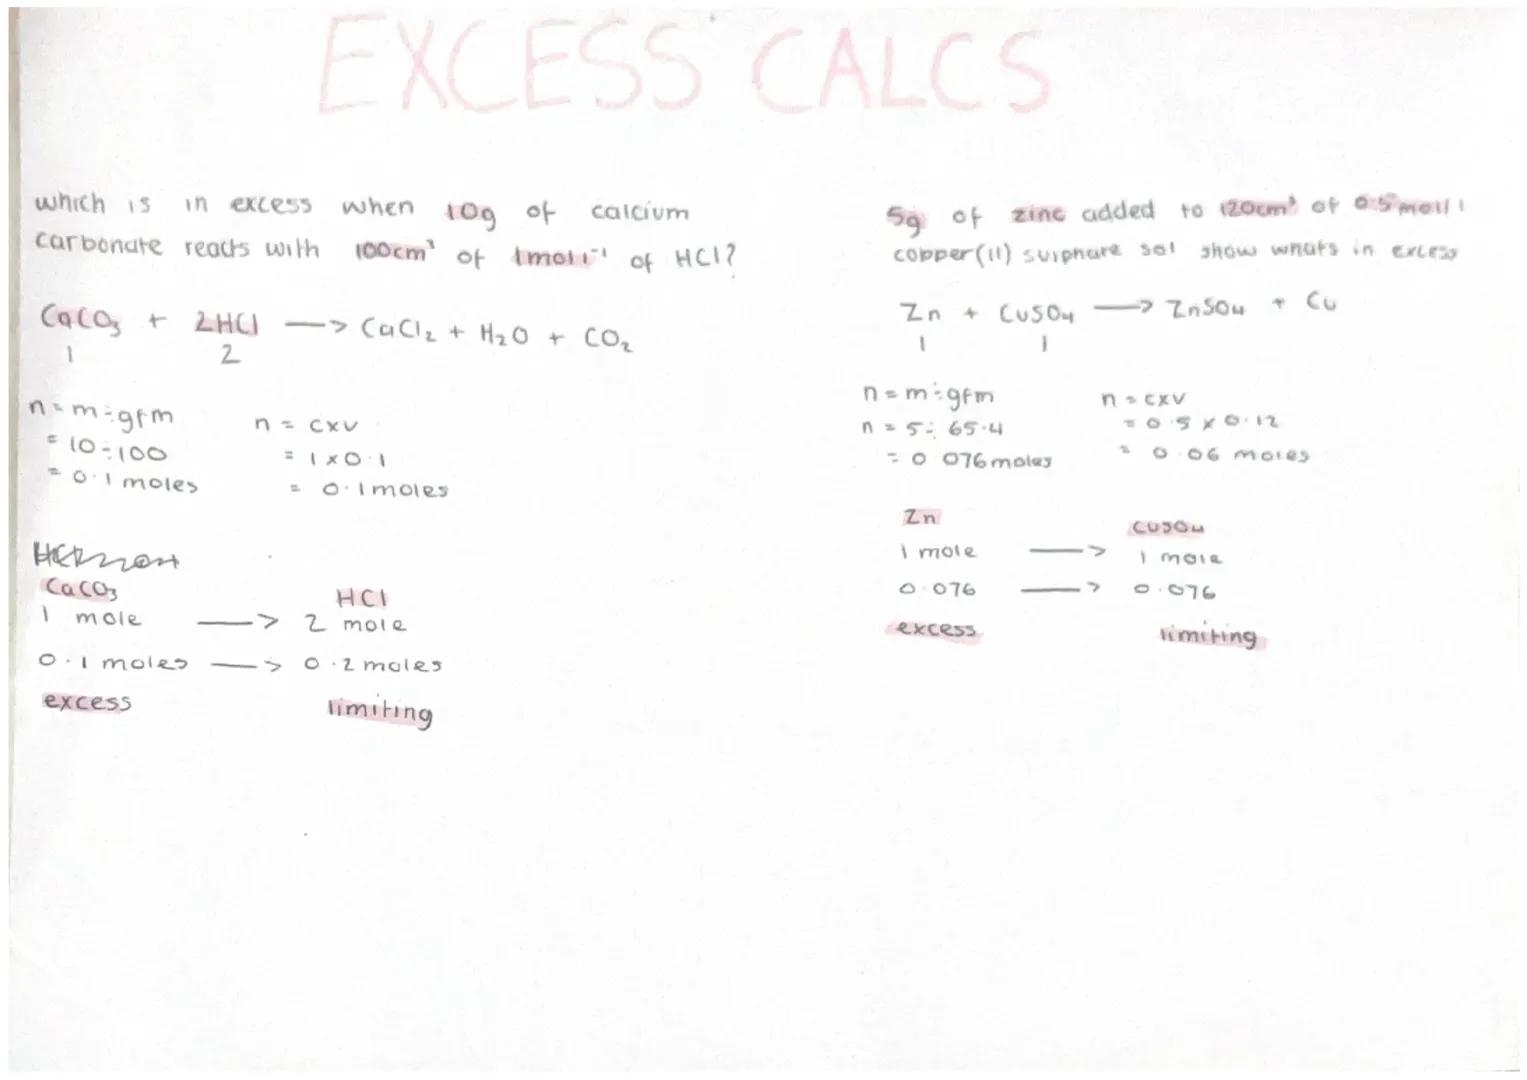 EXCESS CALCS
which is in excess when 10g of calcium
carbonate reacts with 100cm³ of 1mol l⁻¹ of HCl?
CaCO₃ + 2HCl —> CaCl₂ + H₂O + CO₂
1 2
n = m÷gfm
= 10÷100
= 0.1 moles
n = cxv
= 1 x 0.1
= 0.1 moles
CaCO₃ HCl
1 mole —> 2 mole
0.1 moles —> 0.2 moles
excess limiting
5g of zinc added to 120cm³ of 0.5 mol l
copper(II) sulphate sol show whats in excess
Zn + CuSO₄ —> ZnSO₄ + Cu
1 1
n = m÷gfm
n = 5÷ 65.4
= 0.076 moles
n = cxv
= 0.5 x 0.12
= 0.06 moles
Zn CuSO₄
1 mole —> 1 mole
0.076 —> 0.076
excess limiting